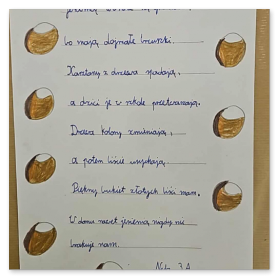 bo mają dojrzałe brzuszki.
Kasztany z drzewa spadają,
a dzieci je w rękole przekazują.
Drzewa kolory zmieniają,
a potem liście usychają.
Piękny bukiet złotych liści mam.
W domu nawet jesienią nigdy nie
brakuje nam.
3A